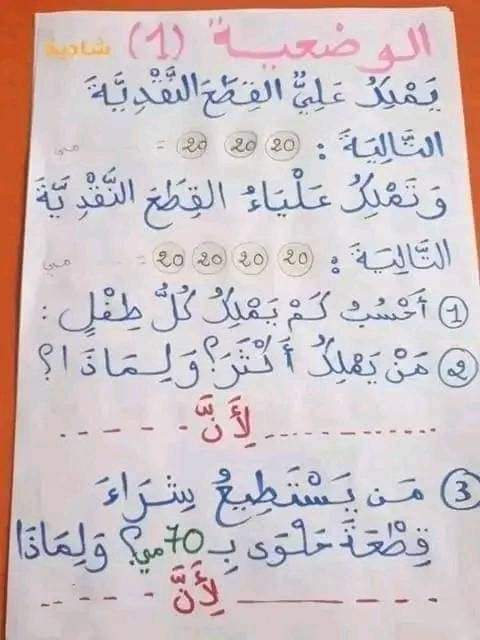 الوضعية (1) شادية
يَمْلِكُ عَلِيٌّ القِطَعَ النَّقْدِيَّةَ
التَّالِيَةَ : 20 20 20 = ------ مي
وَ تَمْلِكُ عَلْيَاءُ القِطَعَ النَّقْدِيَّةَ
التَّالِيَةَ : 20 20 20 20 = ------ مي
1 أَحْسُبُ كَمْ يَمْلِكُ كُلُّ طِفْلٍ :
2 مَنْ يَمْلِكُ أَكْثَرَ؟ وَلِمَاذَا؟
------------ لِأَنَّ ------
3 مَن يَسْتَطِيعُ شِرَاءَ
قِطْعَةَ حَلْوَى بِـ 70 مي؟ وَلِمَاذَا
------------ لِأَنَّ ------